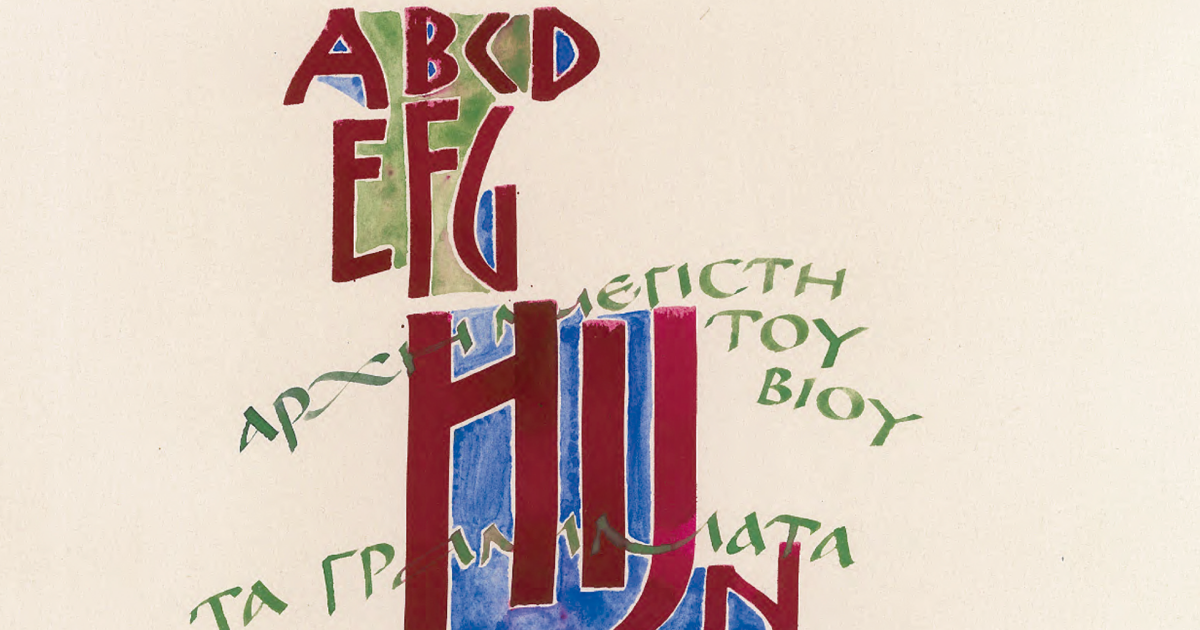 ABCD
EFG
ΑΡΧΗ ΜΕΓΙCΤΗ
ΤΟΥ
ΒΙΟΥ
HIJ
ΤΑ ΓΡΑΜΜΑΤΑ
N